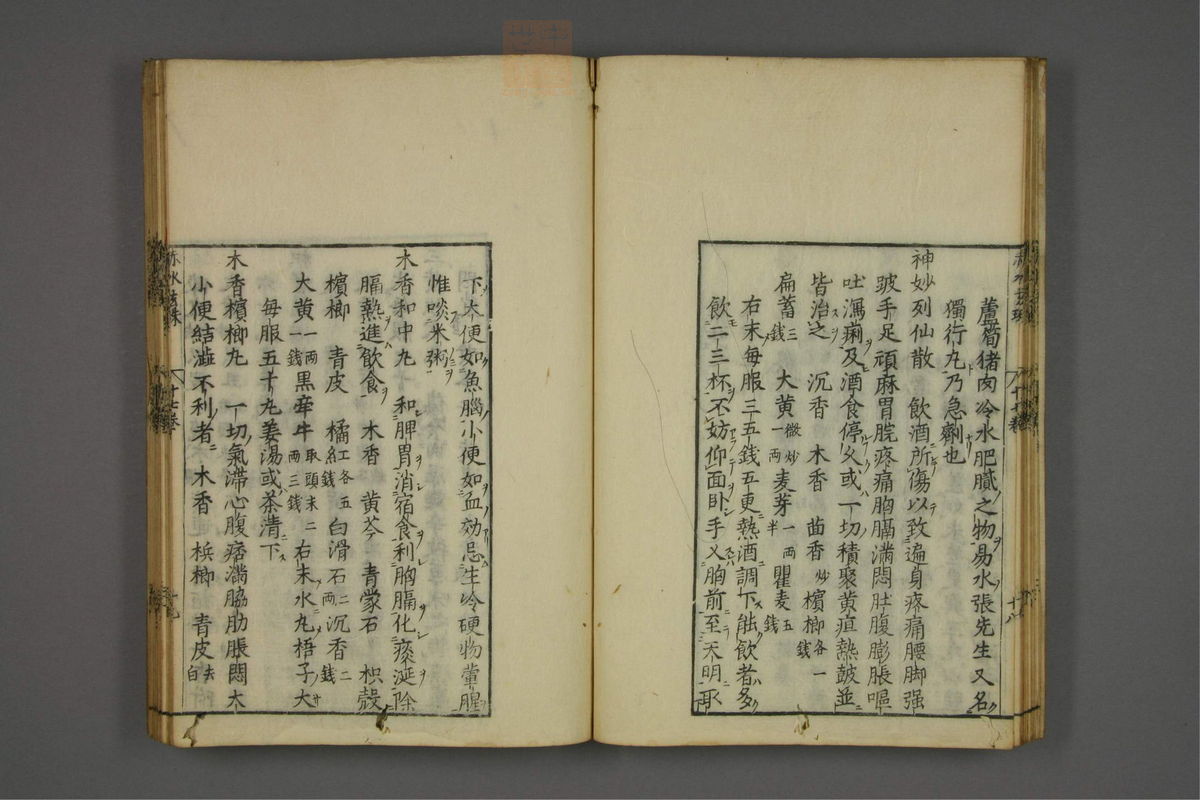 蘆筍猪肉冷水肥膩之物易水張先生又名
獨行丸乃急劑也
神妙列仙散　飲酒所傷以致遍身疼痛腰脚强
跛手足頑麻胃脘疼痛胸膈滿悶肚腹膨脹嘔
吐瀉痢及酒食停久或一切積聚黄疸熱皷並
皆治之　沉香　木香　茴香炒　檳榔各一錢
扁蓄三錢　大黄微炒一兩　麦芽一兩半　瞿麦五錢
右末每服三五錢五更熱酒調下能飲者多
飲二三杯不妨仰面卧手叉胸前至天明取
下大便如魚腦小便如血効忌生冷硬物葷腥
惟啖米粥
木香和中丸　和脾胃消宿食利胸膈化痰涎除
膈熱進飲食　木香　黄芩　青蒙石　枳殼
檳榔　青皮　橘紅各五錢　白滑石二兩　沉香二錢
大黄一兩一錢　黒牽牛取頭末二兩三錢　右末水丸梧子大
每服五十丸姜湯或茶清下
木香檳榔丸　一切氣滯心腹痞滿脇肋脹悶大
小便結澁不利者　木香　梹榔　青皮去白
赤水玄珠
十七卷